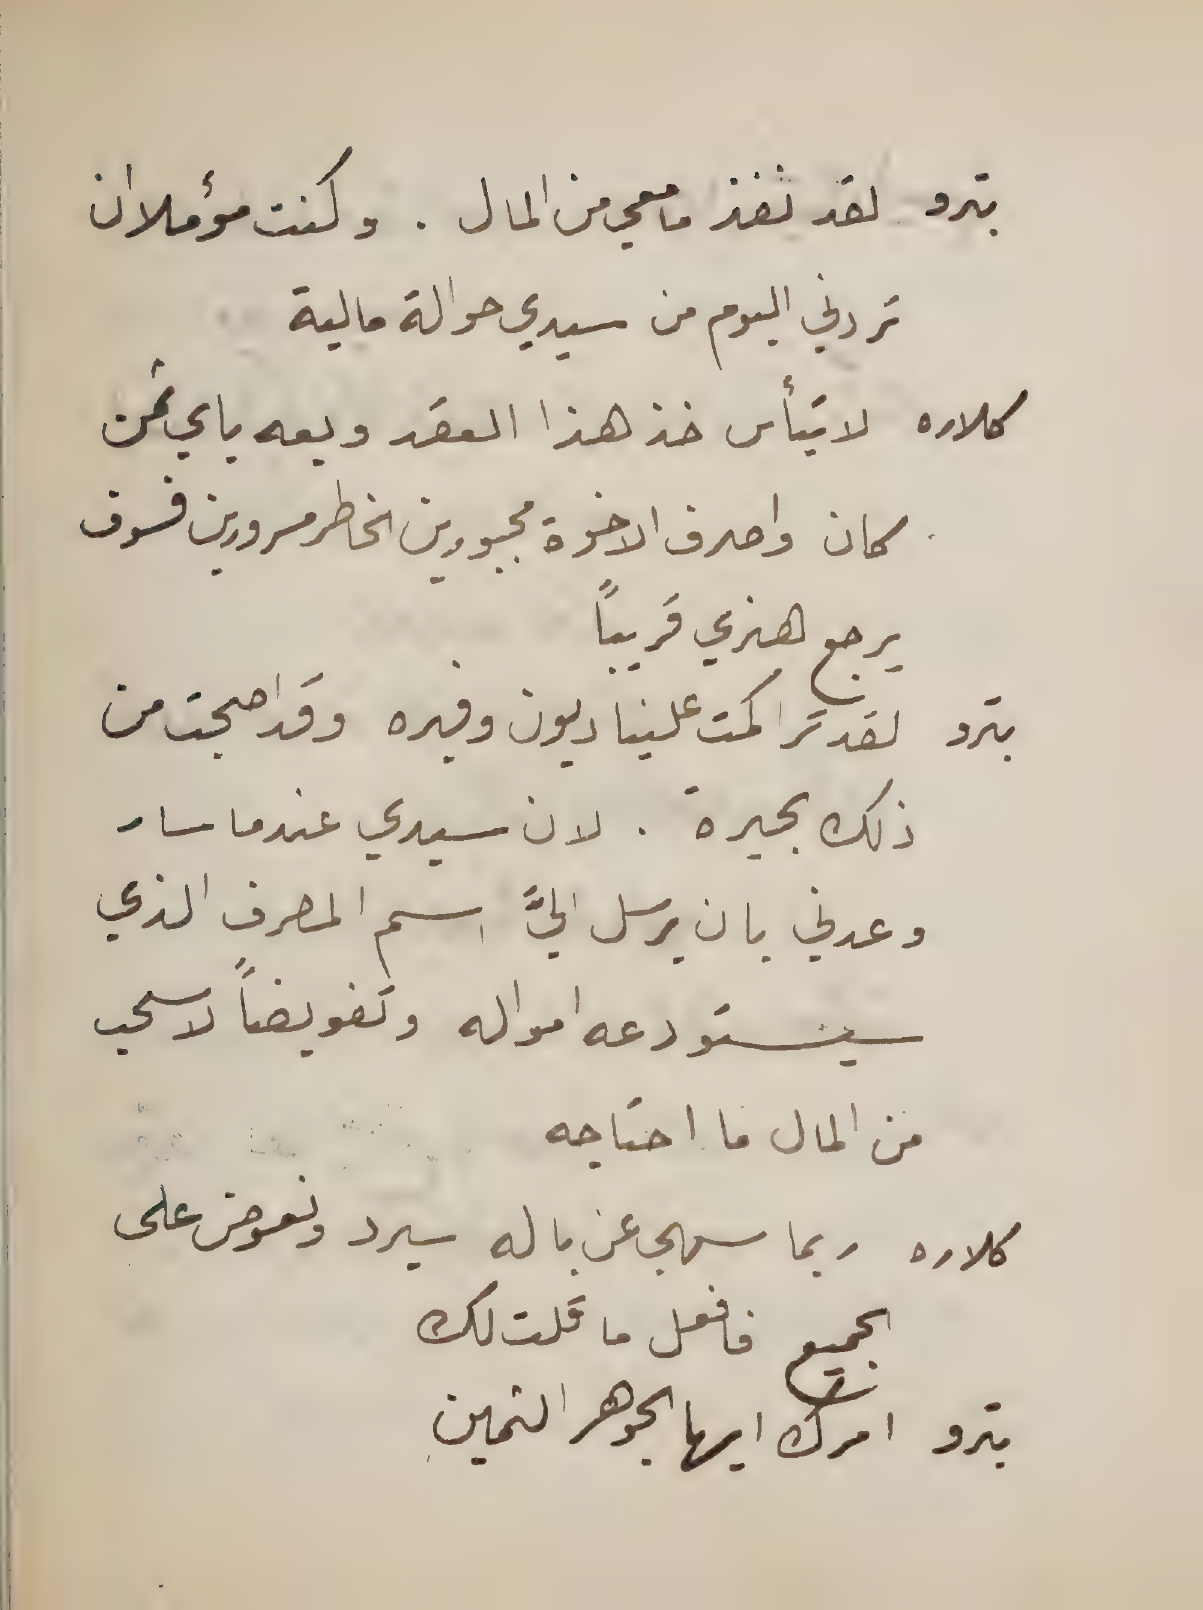 بترو لقد نفذ ما معي من المال . وكنت مؤملا ان
تردني اليوم من سيدي حوالة مالية
كلاره لا تيأس خذ هذا العقد وبعه باي ثمن
كان واصرف الاخوة مجبورين الخاطر مسرورين فسوف
يرجع هنري قريباً
بترو لقد تراكمت علينا ديون وفيره وقد اصبحت من
ذلك بحيرة . لان سيدي عندما سار
وعدني بان يرسل اليَّ اسم المصرف الذي
سيستودعه امواله وتفويضاً لاسحب
من المال ما احتاجه
كلاره ربما سهي عن باله سيرد ونعوض على
الجميع فافعل ما قلت لك
بترو امرك ايها الجوهر الثمين